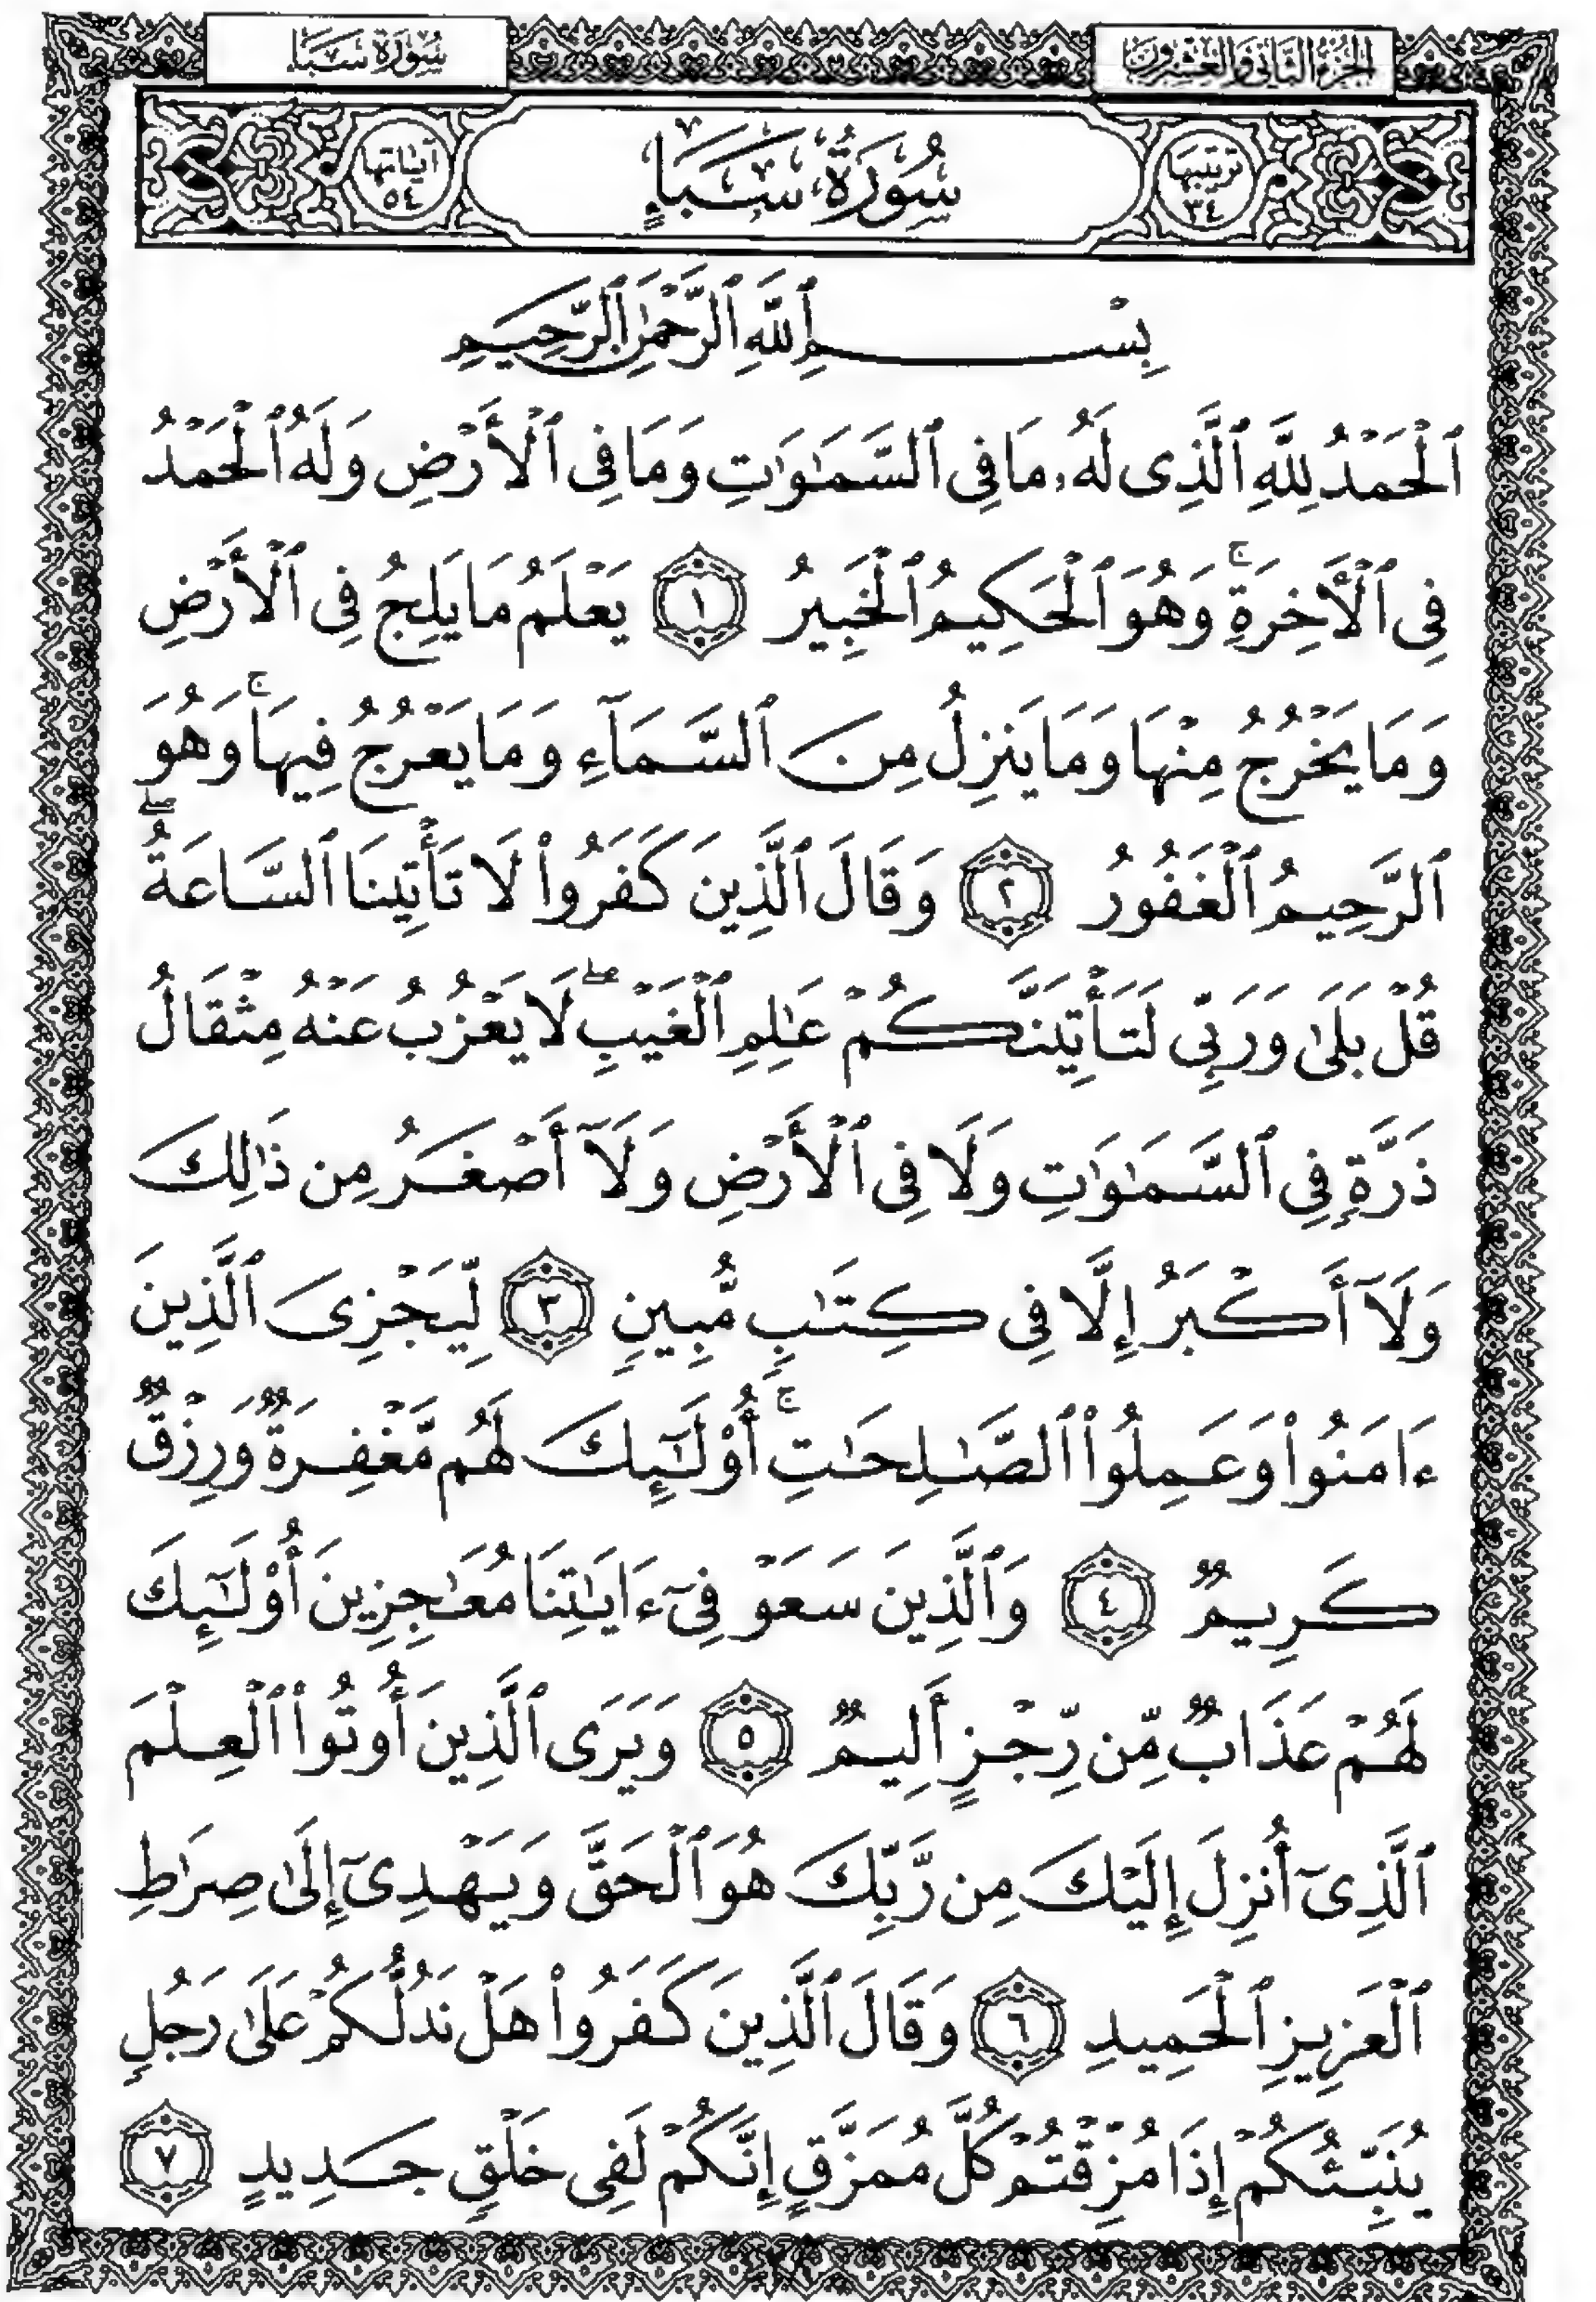 الجزء الثاني والعشرون
سُورَةُ سَبَإٍ
ترتيبها ٣٤
سُورَةُ سَبَإٍ
آياتها ٥٤
بِسْمِ ٱللَّهِ ٱلرَّحْمَٰنِ ٱلرَّحِيمِ
ٱلْحَمْدُ لِلَّهِ ٱلَّذِى لَهُۥ مَا فِى ٱلسَّمَٰوَٰتِ وَمَا فِى ٱلْأَرْضِ وَلَهُ ٱلْحَمْدُ
فِى ٱلْأَٓخِرَةِ ۚ وَهُوَ ٱلْحَكِيمُ ٱلْخَبِيرُ ١ يَعْلَمُ مَا يَلِجُ فِى ٱلْأَرْضِ
وَمَا يَخْرُجُ مِنْهَا وَمَا يَنزِلُ مِنَ ٱلسَّمَآءِ وَمَا يَعْرُجُ فِيهَا ۚ وَهُوَ
ٱلرَّحِيمُ ٱلْغَفُورُ ٢ وَقَالَ ٱلَّذِينَ كَفَرُوا۟ لَا تَأْتِينَا ٱلسَّاعَةُ ۖ
قُلْ بَلَىٰ وَرَبِّى لَتَأْتِيَنَّكُمْ عَٰلِمِ ٱلْغَيْبِ ۖ لَا يَعْزُبُ عَنْهُ مِثْقَالُ
ذَرَّةٍ فِى ٱلسَّمَٰوَٰتِ وَلَا فِى ٱلْأَرْضِ وَلَآ أَصْغَرُ مِن ذَٰلِكَ
وَلَآ أَكْبَرُ إِلَّا فِى كِتَٰبٍ مُّبِينٍ ٣ لِّيَجْزِىَ ٱلَّذِينَ
ءَامَنُوا۟ وَعَمِلُوا۟ ٱلصَّٰلِحَٰتِ ۚ أُو۟لَٰٓئِكَ لَهُم مَّغْفِرَةٌ وَرِزْقٌ
كَرِيمٌ ٤ وَٱلَّذِينَ سَعَوْ فِىٓ ءَايَٰتِنَا مُعَٰجِزِينَ أُو۟لَٰٓئِكَ
لَهُمْ عَذَابٌ مِّن رِّجْزٍ أَلِيمٌ ٥ وَيَرَى ٱلَّذِينَ أُوتُوا۟ ٱلْعِلْمَ
ٱلَّذِىٓ أُنزِلَ إِلَيْكَ مِن رَّبِّكَ هُوَ ٱلْحَقَّ وَيَهْدِىٓ إِلَىٰ صِرَٰطِ
ٱلْعَزِيزِ ٱلْحَمِيدِ ٦ وَقَالَ ٱلَّذِينَ كَفَرُوا۟ هَلْ نَدُلُّكُمْ عَلَىٰ رَجُلٍ
يُنَبِّئُكُمْ إِذَا مُزِّقْتُمْ كُلَّ مُمَزَّقٍ إِنَّكُمْ لَفِى خَلْقٍ جَدِيدٍ ٧